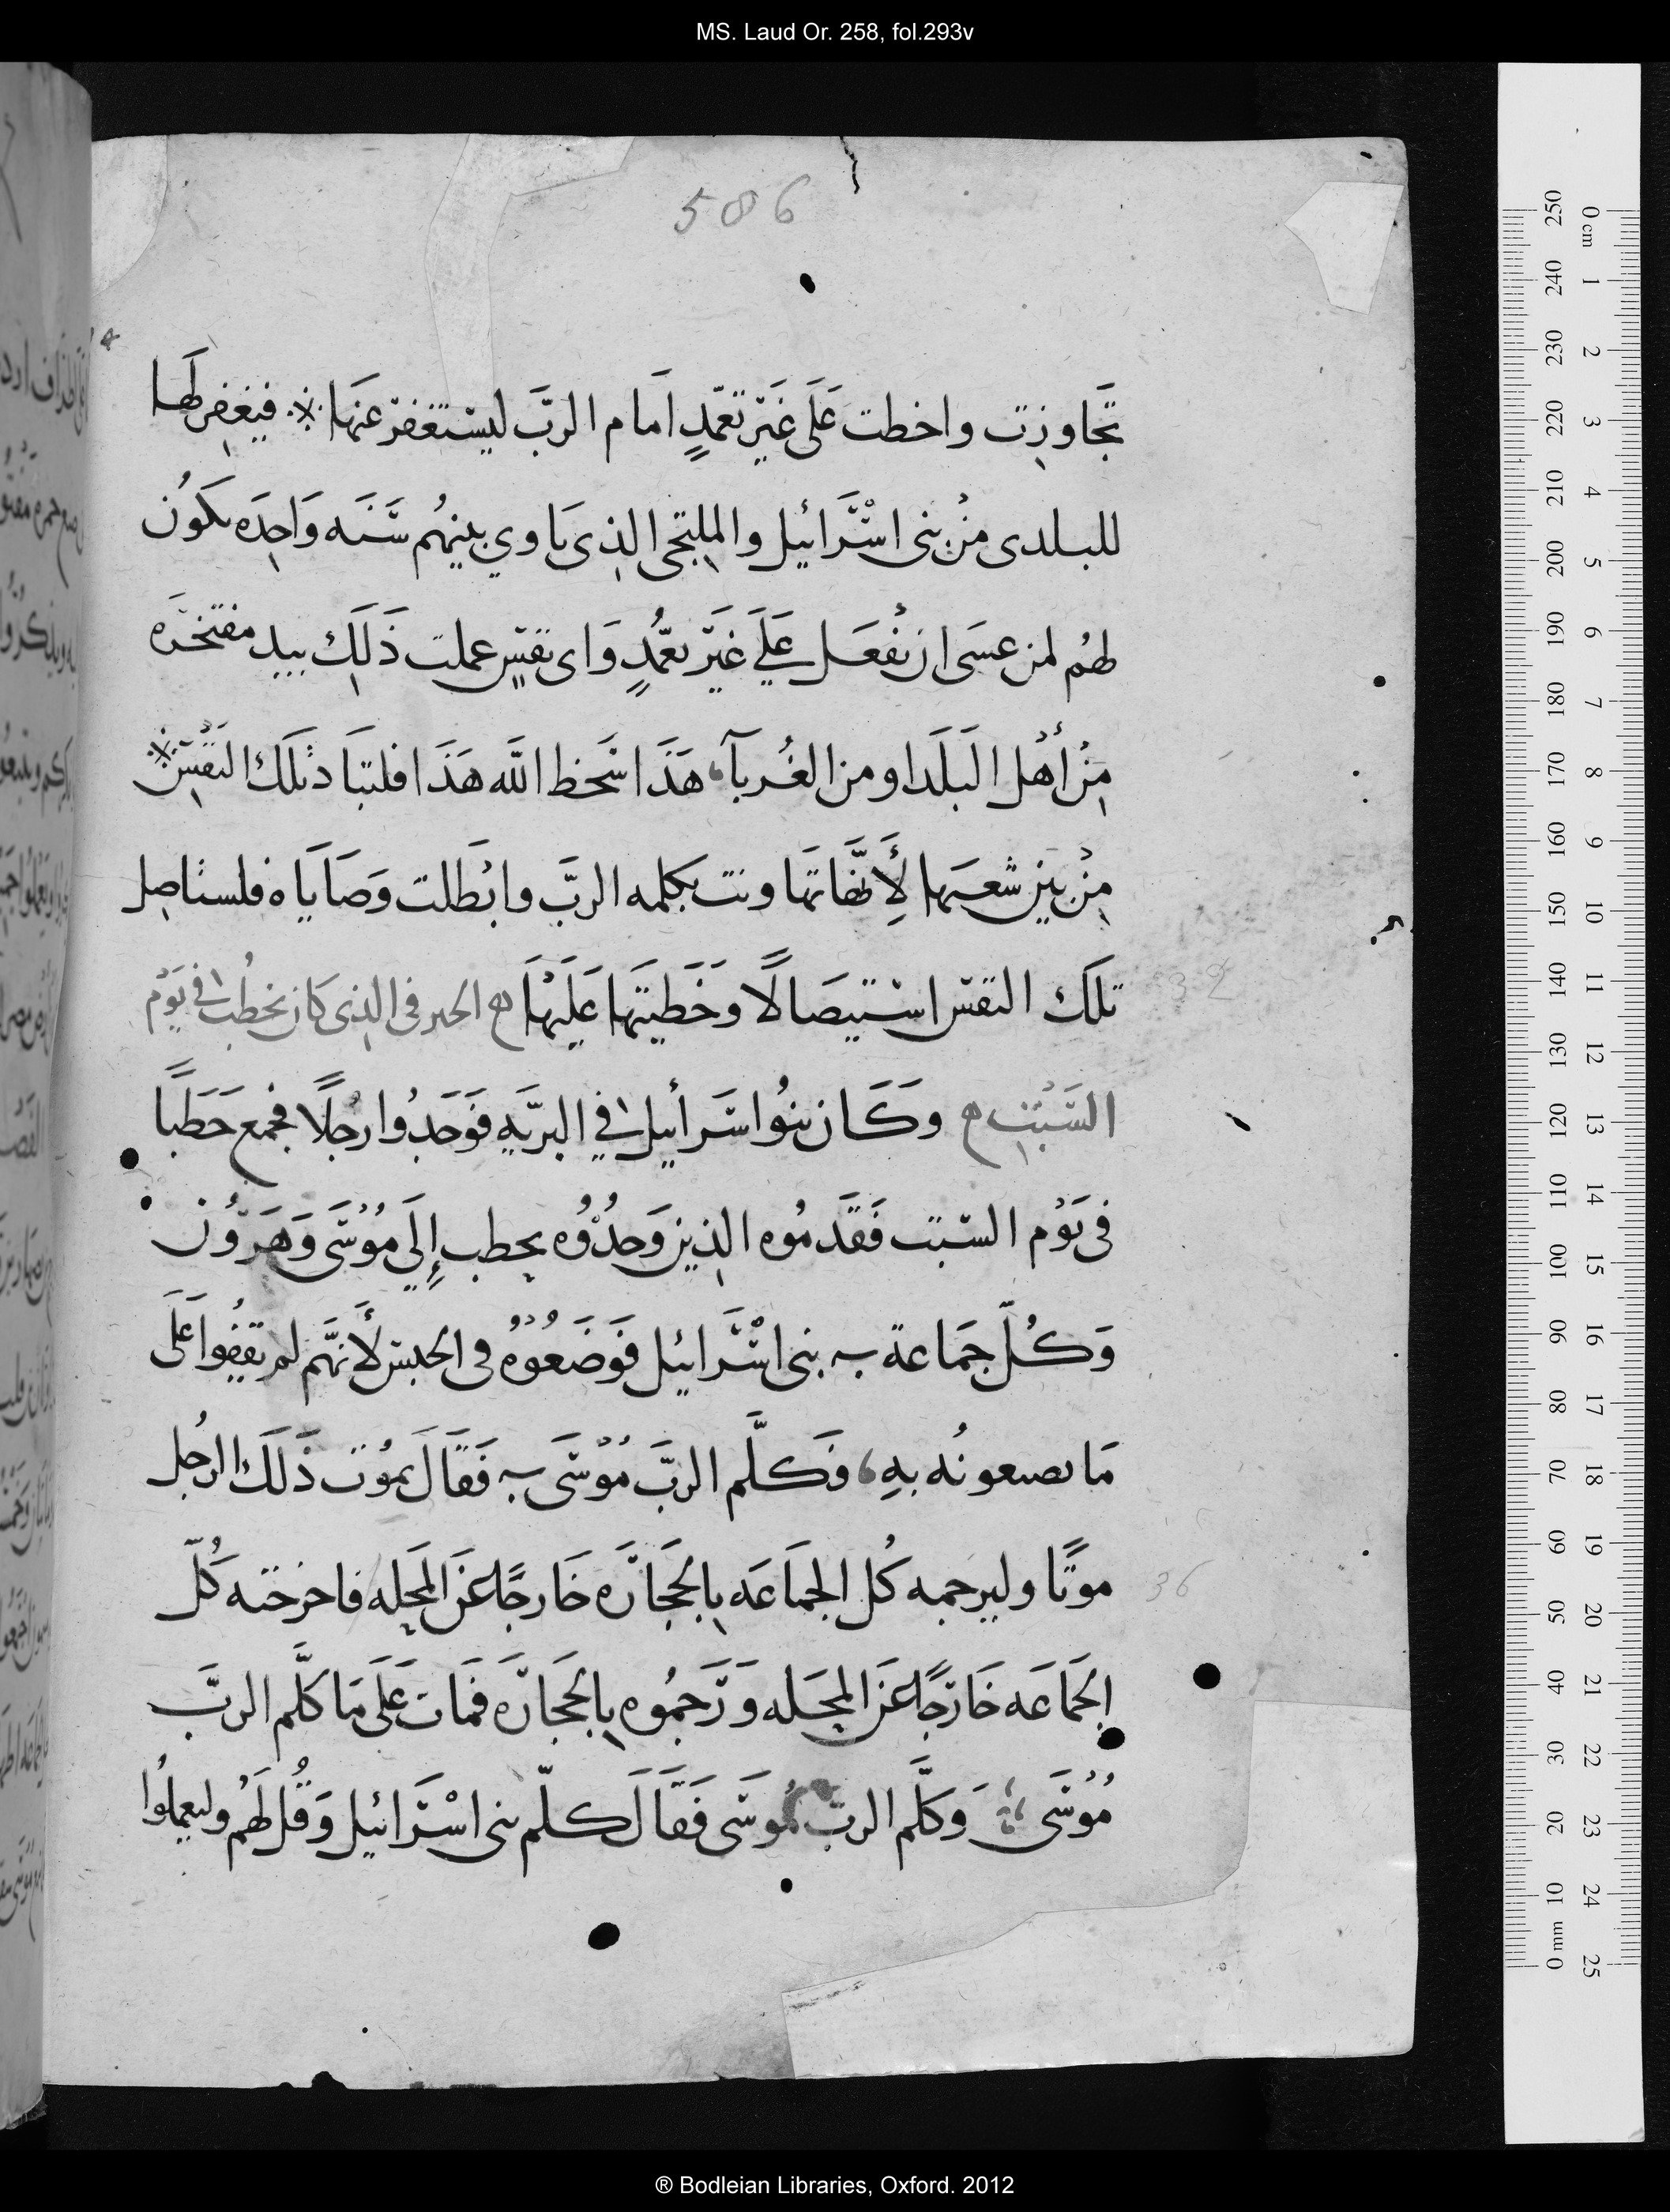 MS. Laud Or. 258, fol.293v
586
تجَاوزِت واخطت عَلَى غَيَر تعَمّدٍ اَمام الربَّ ليستغفر عَنهَا فيغفِر لَها
للبلدى منْ بنى اسْرَائيل والملتجى الذِى يَاوي بينهُم سَنَه وَاحِدَه تكوُن
لهُم لمن عسَى ان تفْعَل عَلَي غيَر تعمُّدٍ وَاى نفسٍ عملت ذَلِك بيد مفتخرَه
مِنْ أهْل البَلَد او من الغُربآ هَذَا سَخط اللّه هَذَا فلتبَاد تلَك النَفْس
مِنْ بين شعبَها لأَِنهَّا تهَاونت بكلمه الربَّ وابْطَلت وَصَايَاه فلستاصِل
تلَك النفس استيصَالًا وخَطَيتهَا عَلَيْهَا الخبر فى الذِى كان يخطُب فى يَوْم
السَبْتِ وكَان بنُوا سَرأئيل في البريَه فوَجَدُوا رجُلًا يجمع حَطَبًا
فى يَوْم السّبت فَقَدمُوه الذِين وَجدُوُه يحطِب إِلَي مُوُسَى وَهَروُن
وَكُلّ جمَاعة بنى اسْرَائيل فَوضَعُوُهُ فى الحبس لأَنهَّم لم يقفِوُا عَلَى
مَا يصنعونُه بهِ فَكلَّم الربَّ مُوْسَى فَقَالَ يموُت ذَلَك الرجُل
موتًا وليرجمه كُل الجمَاعَه بِالحجَارَه خَارجًا عَن المحَلِه فاخرجته كُلّ
الجَماعَه خَارجًا عَن المحِلَه وَرَجمُوه بِالحجَارَه فمَات عَلَى مَا كلَّم الربَّ
مُوُسَى وَكلَّم الربّ مُوسَى فَقَالَ كلّم بنى اسْرَائيل وَقُل لَهُم وليعملُوا
32
36
® Bodleian Libraries, Oxford. 2012